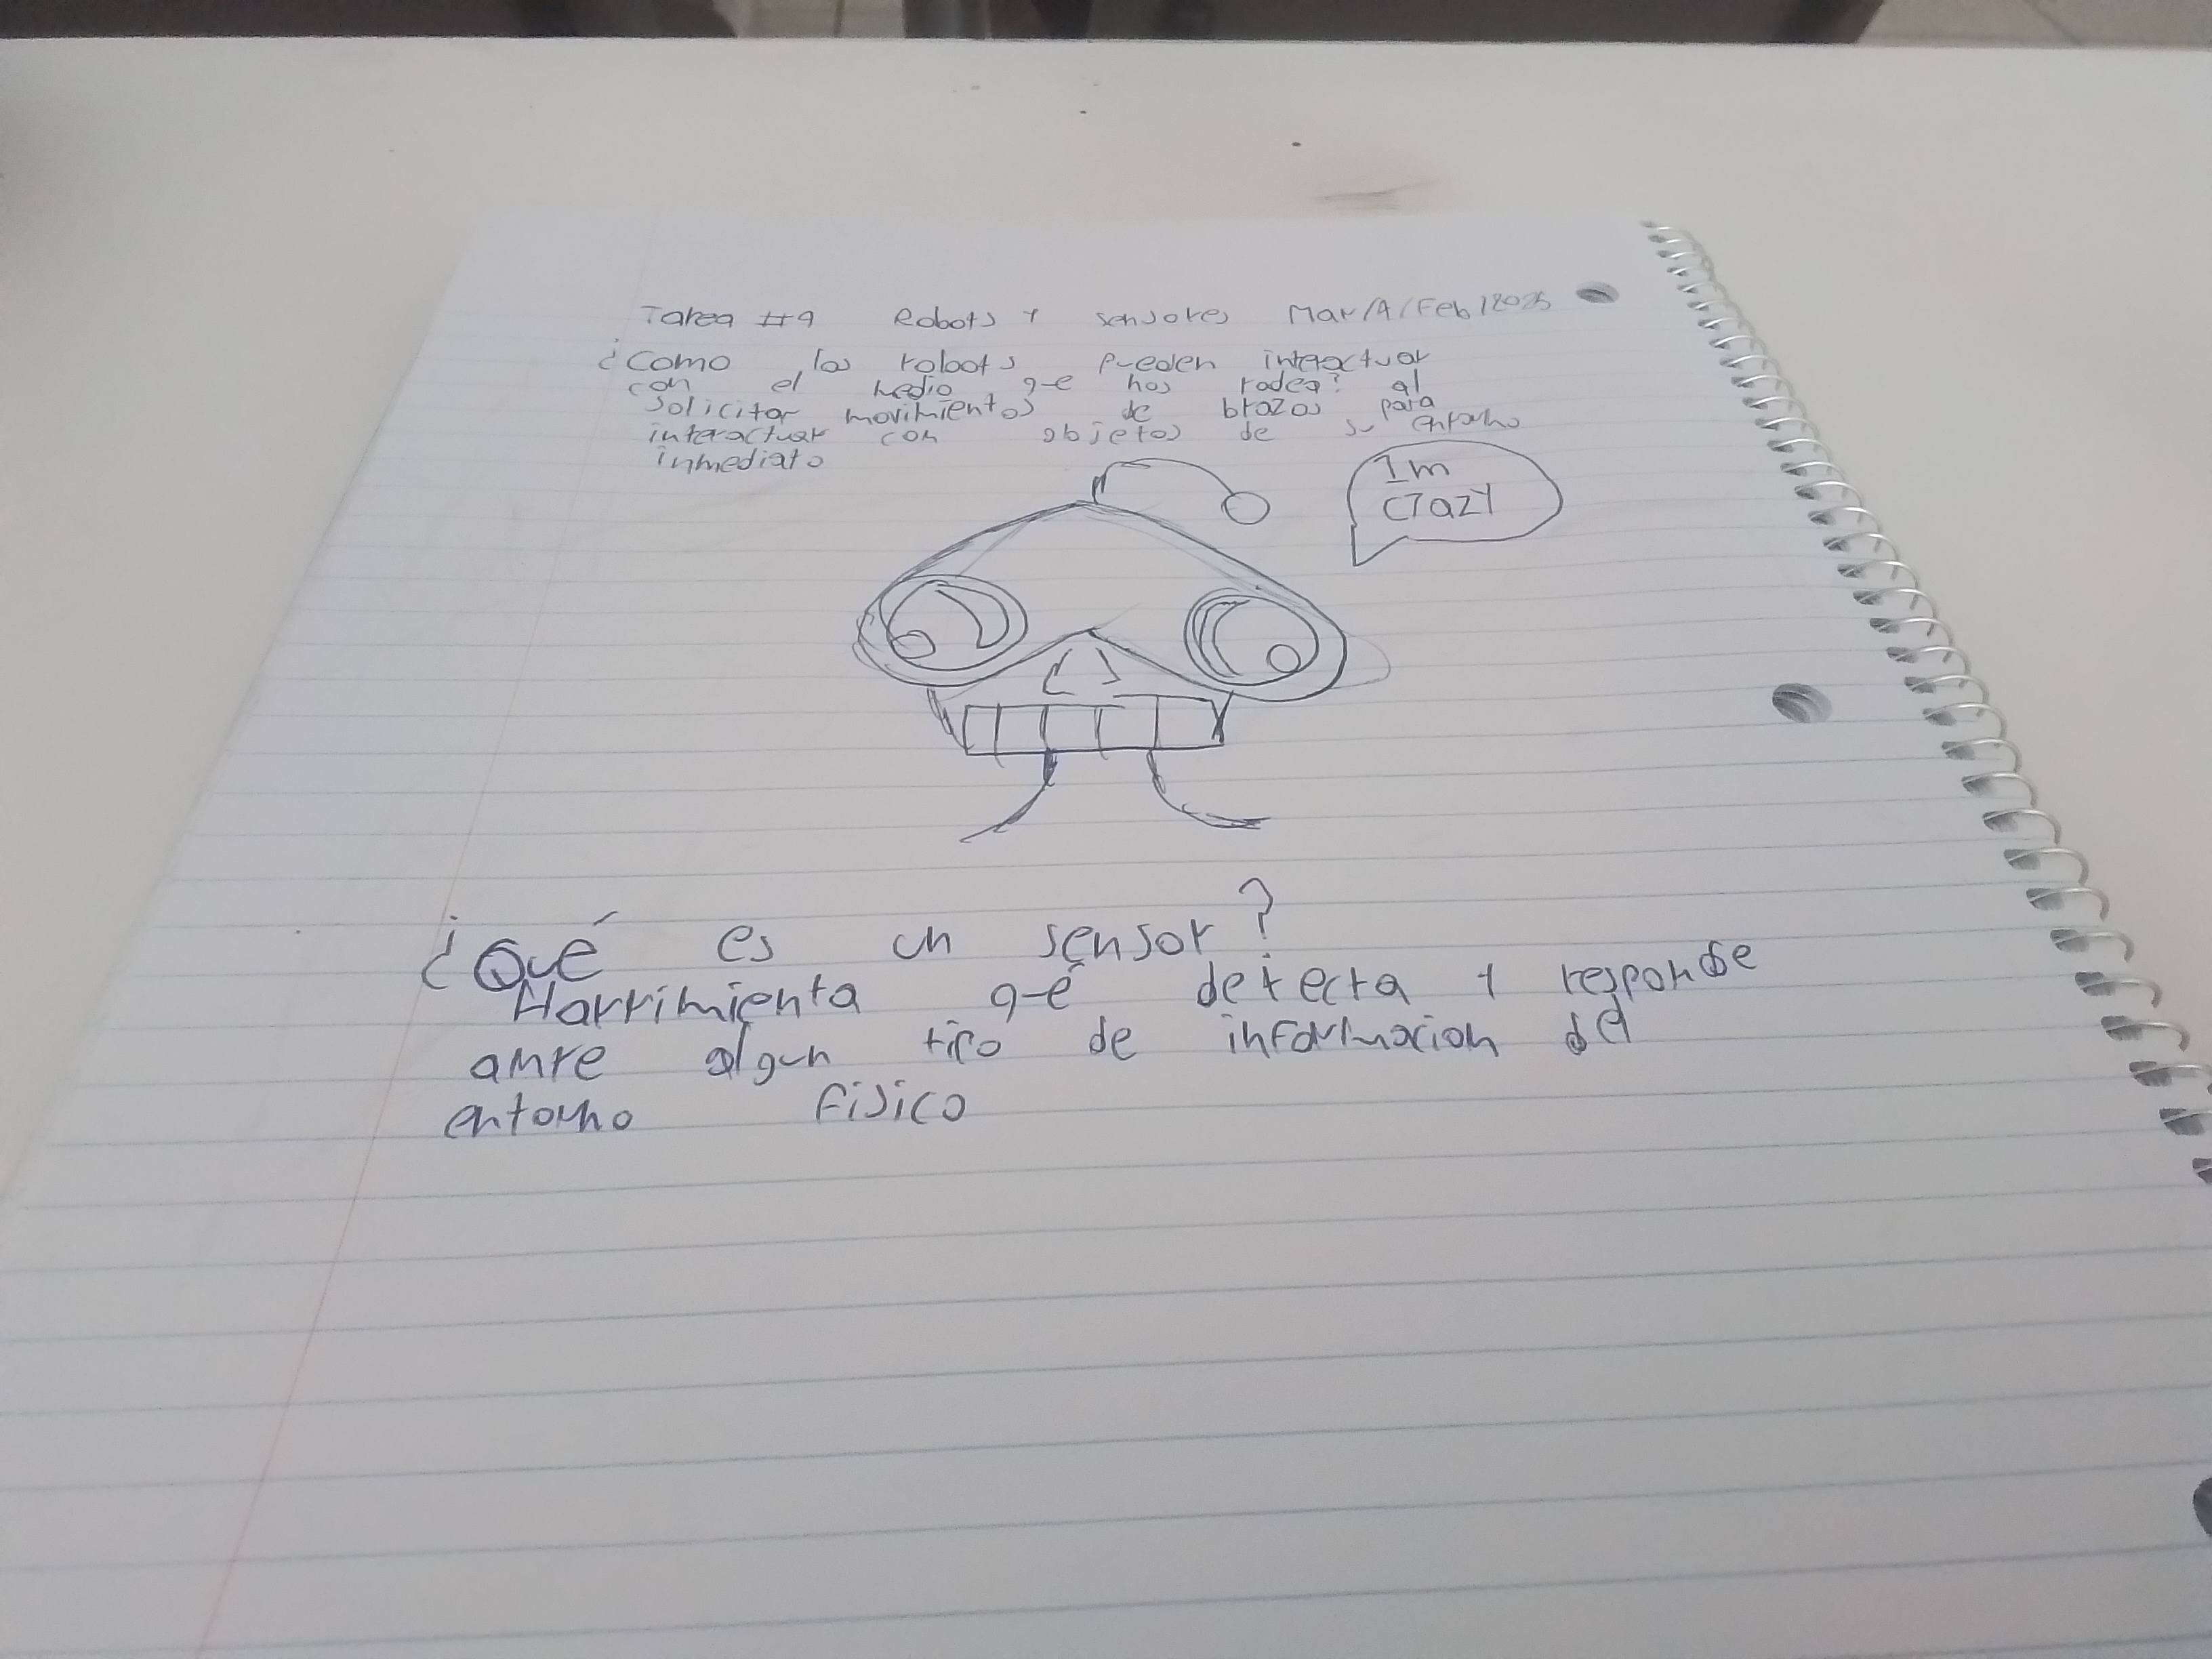 Tarea #9 Robots y sensores Mar/4/Feb/2025
¿Como los robots pueden interactuar
con el medio que nos rodea? al
solicitar movimientos de brazos para
interactuar con objetos de su entorno
inmediato
Im
crazy
¿Qué es un sensor?
Harrimienta qué detecta y responde
ante algun tipo de informacion del
entorno fisico